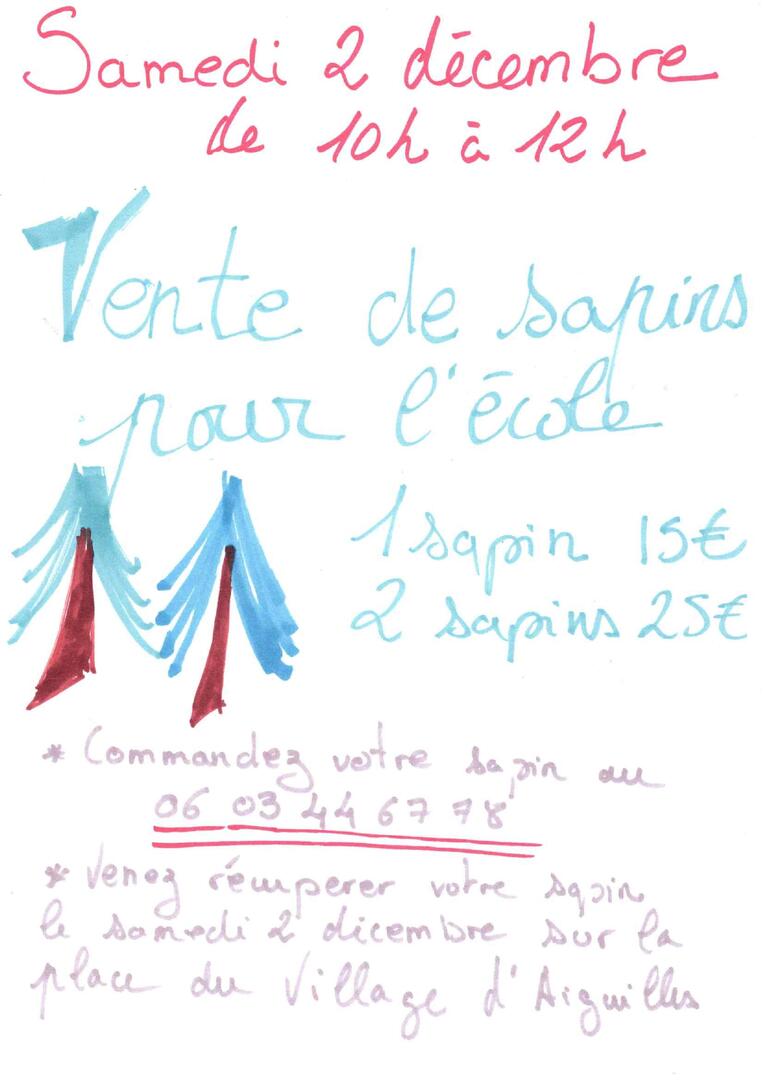 Samedi 2 décembre
de 10h à 12h
Vente de sapins
pour l'école
1 sapin 15€
2 sapins 25€
* Commandez votre sapin au
06 03 44 67 78
* Venez récuperer votre sapin
le samedi 2 décembre sur la
place du Village d'Aiguilles